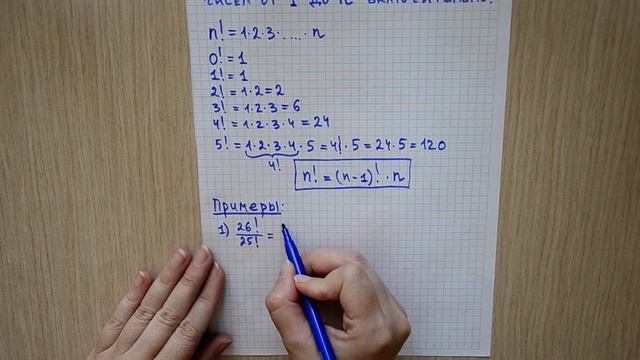 чисел от 1 до n включительно.
n! = 1·2·3·.....·n
0! = 1
1! = 1
2! = 1·2 = 2
3! = 1·2·3 = 6
4! = 1·2·3·4 = 24
5! = 1·2·3·4·5 = 4!·5 = 24·5 = 120
4!
n! = (n-1)!·n
Примеры:
1) 26!/25! =